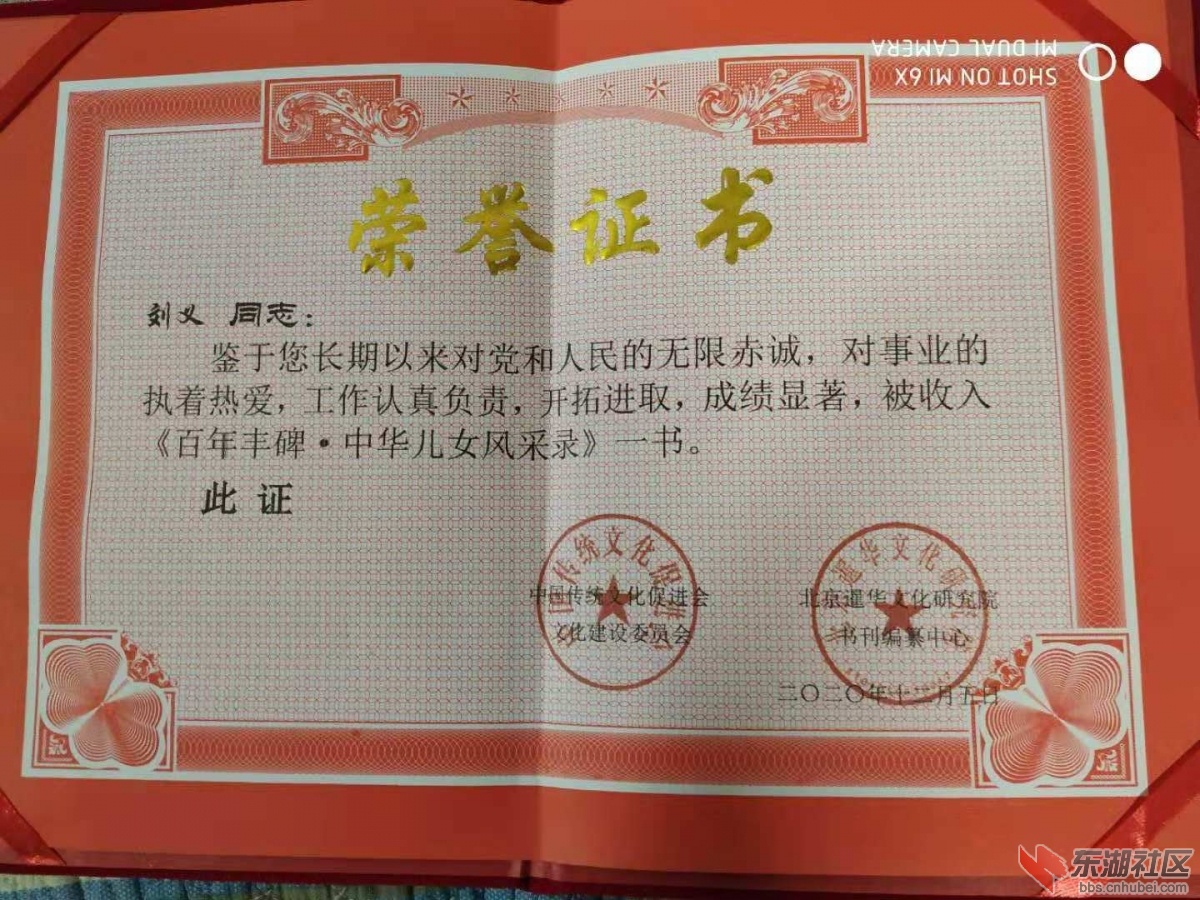 SHOT ON MI 6X
MI DUAL CAMERA
荣誉证书
刘义 同志：
鉴于您长期以来对党和人民的无限赤诚，对事业的
执着热爱，工作认真负责，开拓进取，成绩显著，被收入
《百年丰碑·中华儿女风采录》一书。
此证
中国传统文化促进会
文化建设委员会
北京暹华文化研究院
书刊编纂中心
二〇二〇年十二月五日
东湖社区
bbs.cnhubei.com